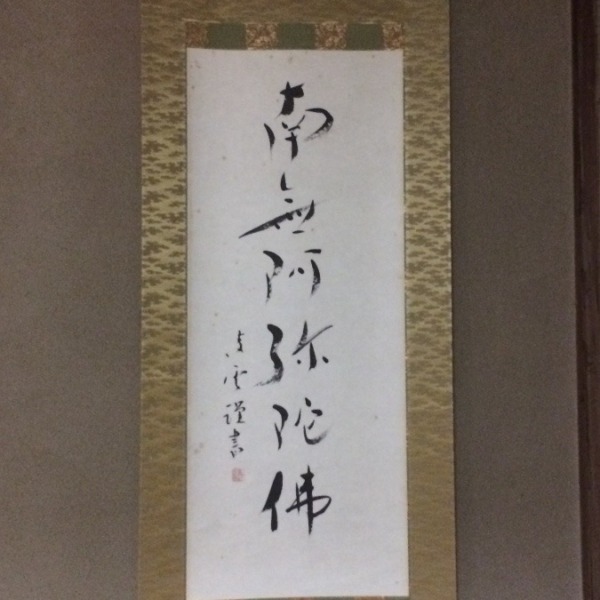 南無阿弥陀佛
雲謹書